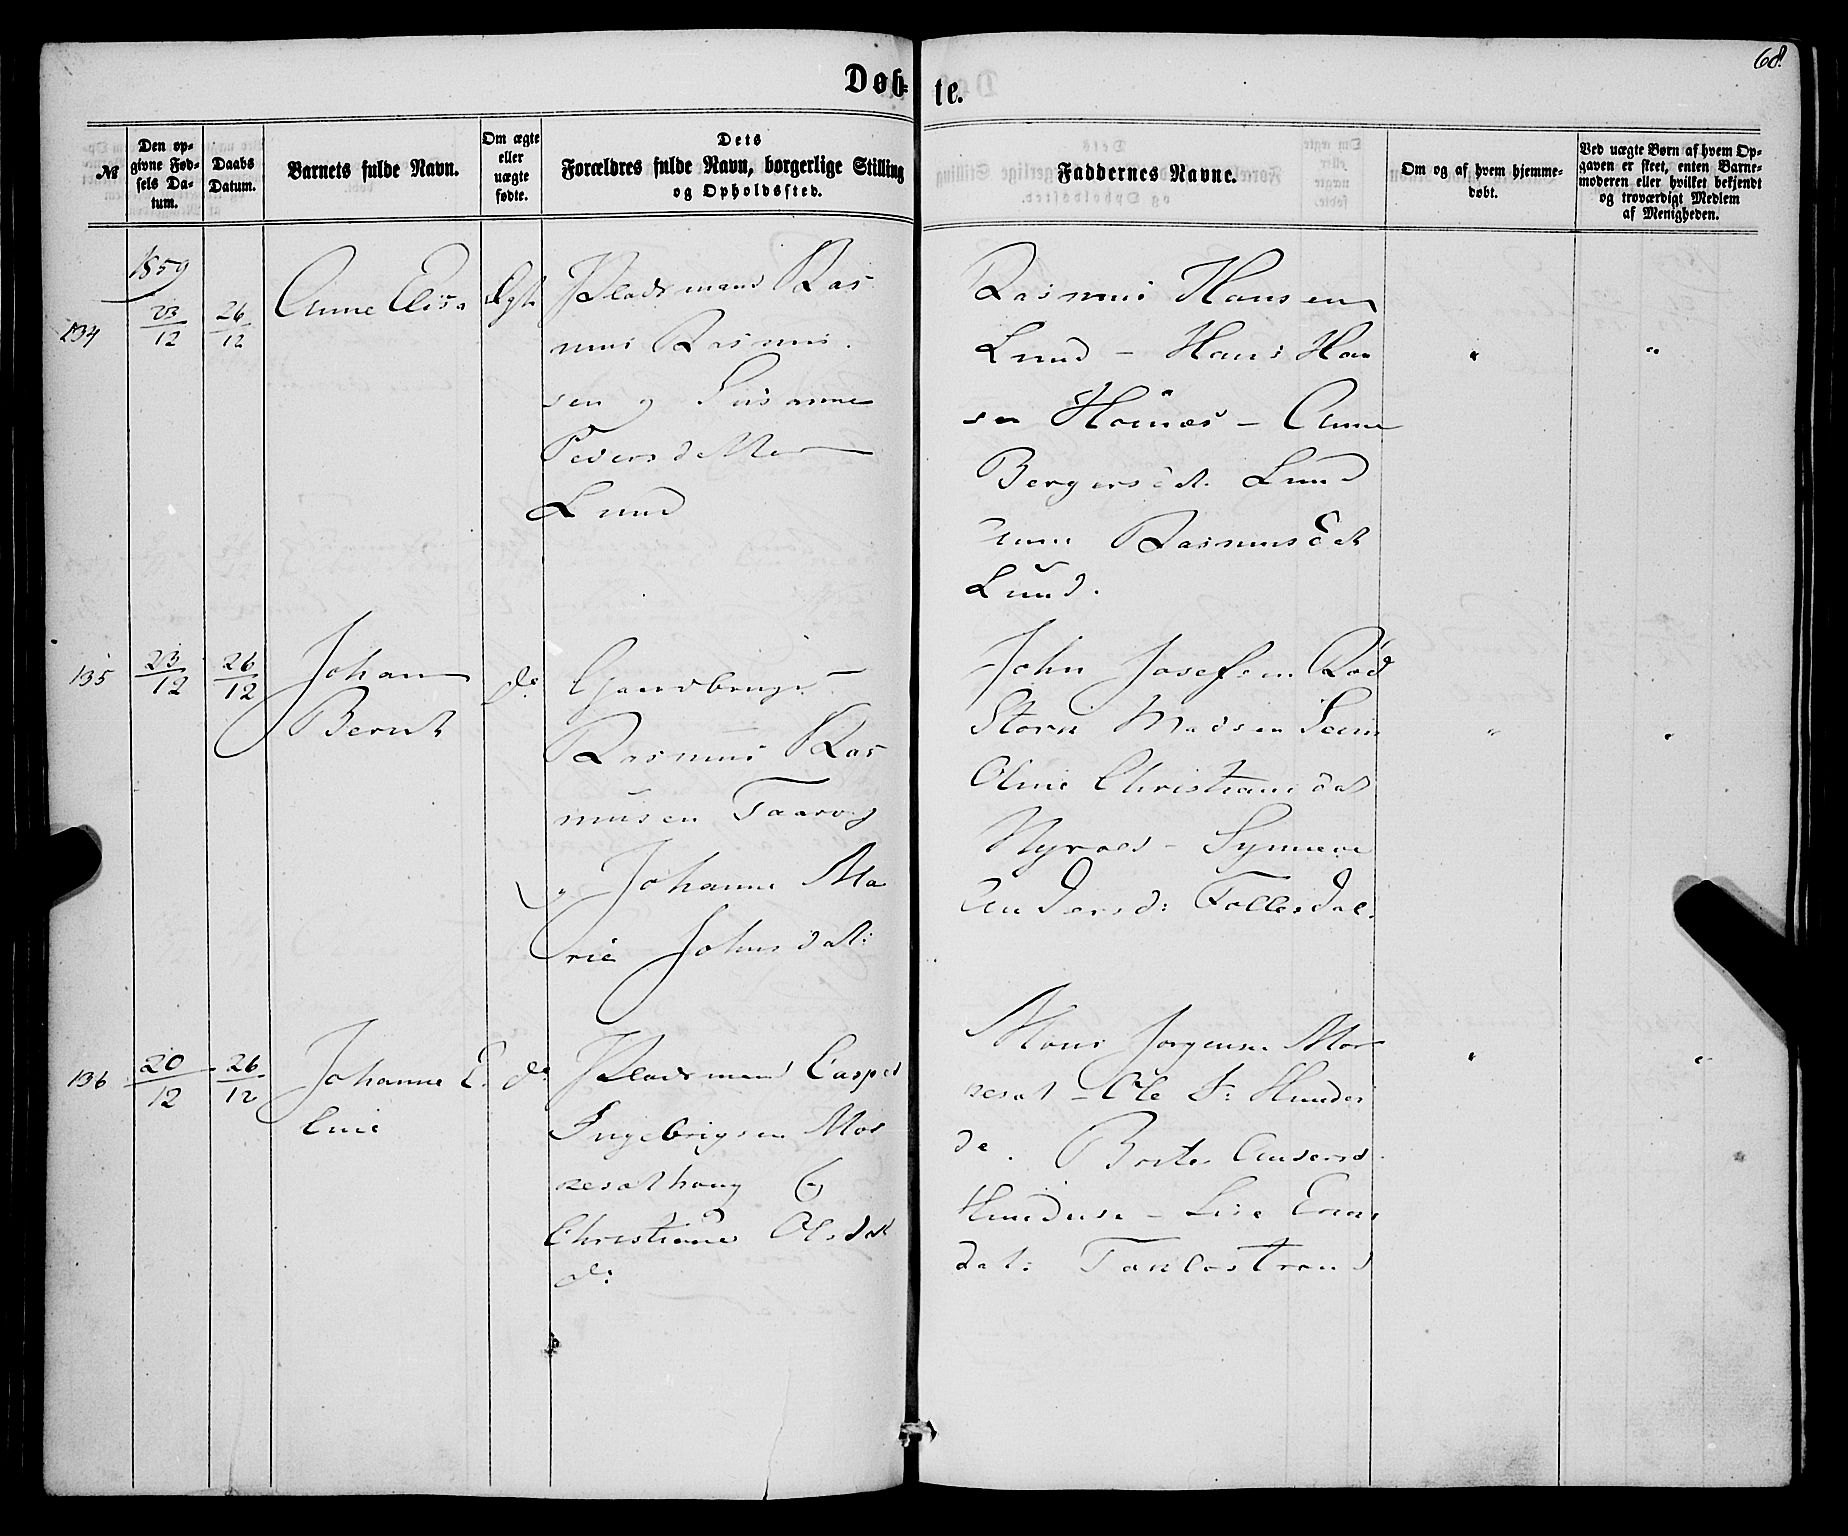 68.
Døb-
te.
№
Den op-
givne Fød-
sels Da-
tum.
Daabs
Datum.
Barnets fulde Navn.
Om ægte
eller
uægte
fødte.
Dets
Forældres fulde Navn, borgerlige Stilling
og Opholdssted.
Faddernes Navne.
Om og af hvem hjemme-
døbt.
Ved uægte Børn af hvem Op-
gaven er skeet, enten Barne-
moderen eller hvilket bekjendt
og troværdigt Medlem
af Menigheden.
1859
134
23/12
26/12
Anne Elisa
Ægte
Pladsmand Ras
mus Rasmus.
sen og Susanne
Peders d
Lund
Rasmus Hansen
Lund - Hans Han
sen - Anne
Bergersdat. Lund
Anne Rasmusdat
Lund.
135
23/12
26/12
Johan
Bernt
do
Gaardbruger
Rasmus Ras
musen
„ Johanne Ma
rie Johnsdat:
John Josefsen
Madsen
Oline Christiansdat
- Synneve
Andersd: Follesdal.
136
20/12
26/12
Johanne E
line
do
Pladsmand Casper
Ingebrigsen Mor
og
Christiane Olsdat
d:
Mons Jørgensen Mor
- Ole
de. Andersd.
- Lise
dat: